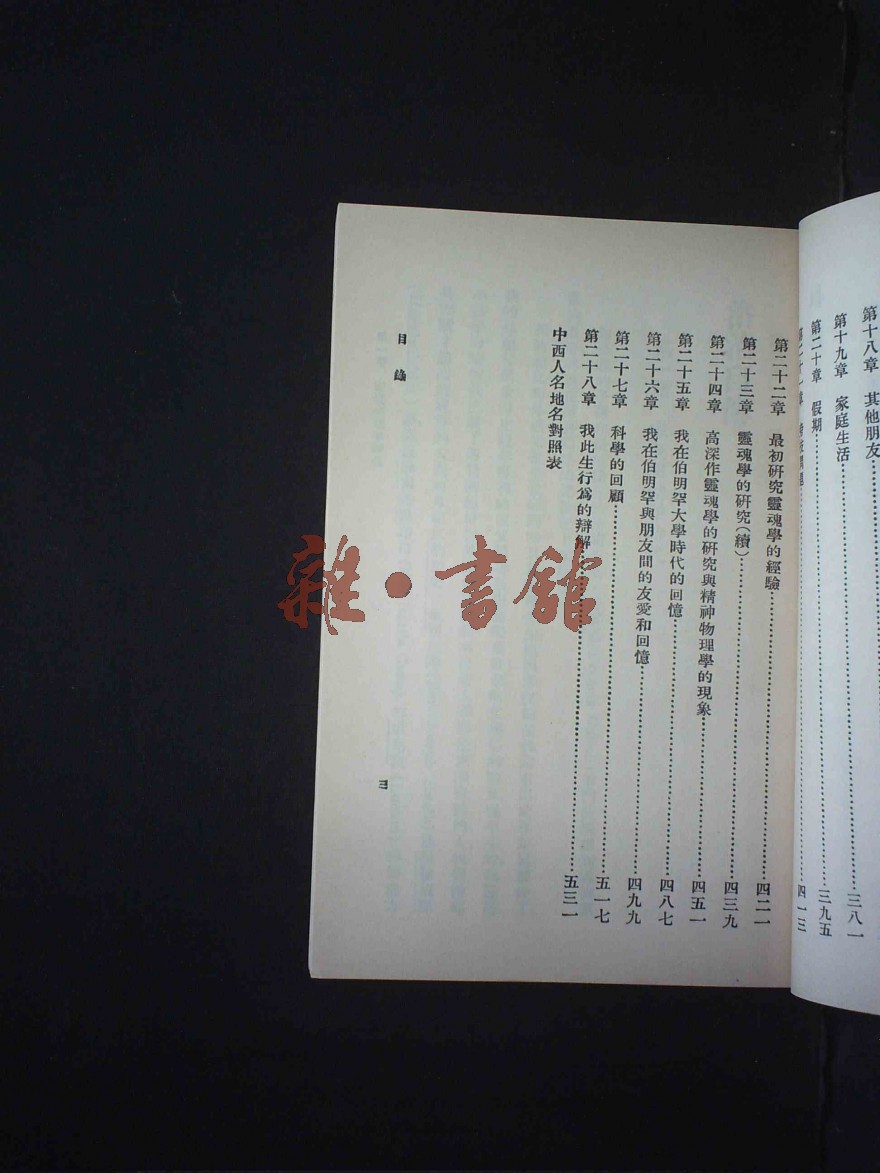 第十八章 其他朋友
三八一
第十九章 家庭生活
三九五
第二十章 假期
第二十一章
四一三
第二十二章 最初研究靈魂學的經驗
四二一
第二十三章 靈魂學的研究(續)
四三九
第二十四章 高深作靈魂學的研究與精神物理學的現象
四五一
第二十五章 我在伯明罕大學時代的回憶
四八七
第二十六章 我在伯明罕與朋友間的友愛和回憶
四九九
第二十七章 科學的回顧
五一七
第二十八章 我此生行為的辯解
五三一
中西人名地名對照表
目錄
三
雜·書館